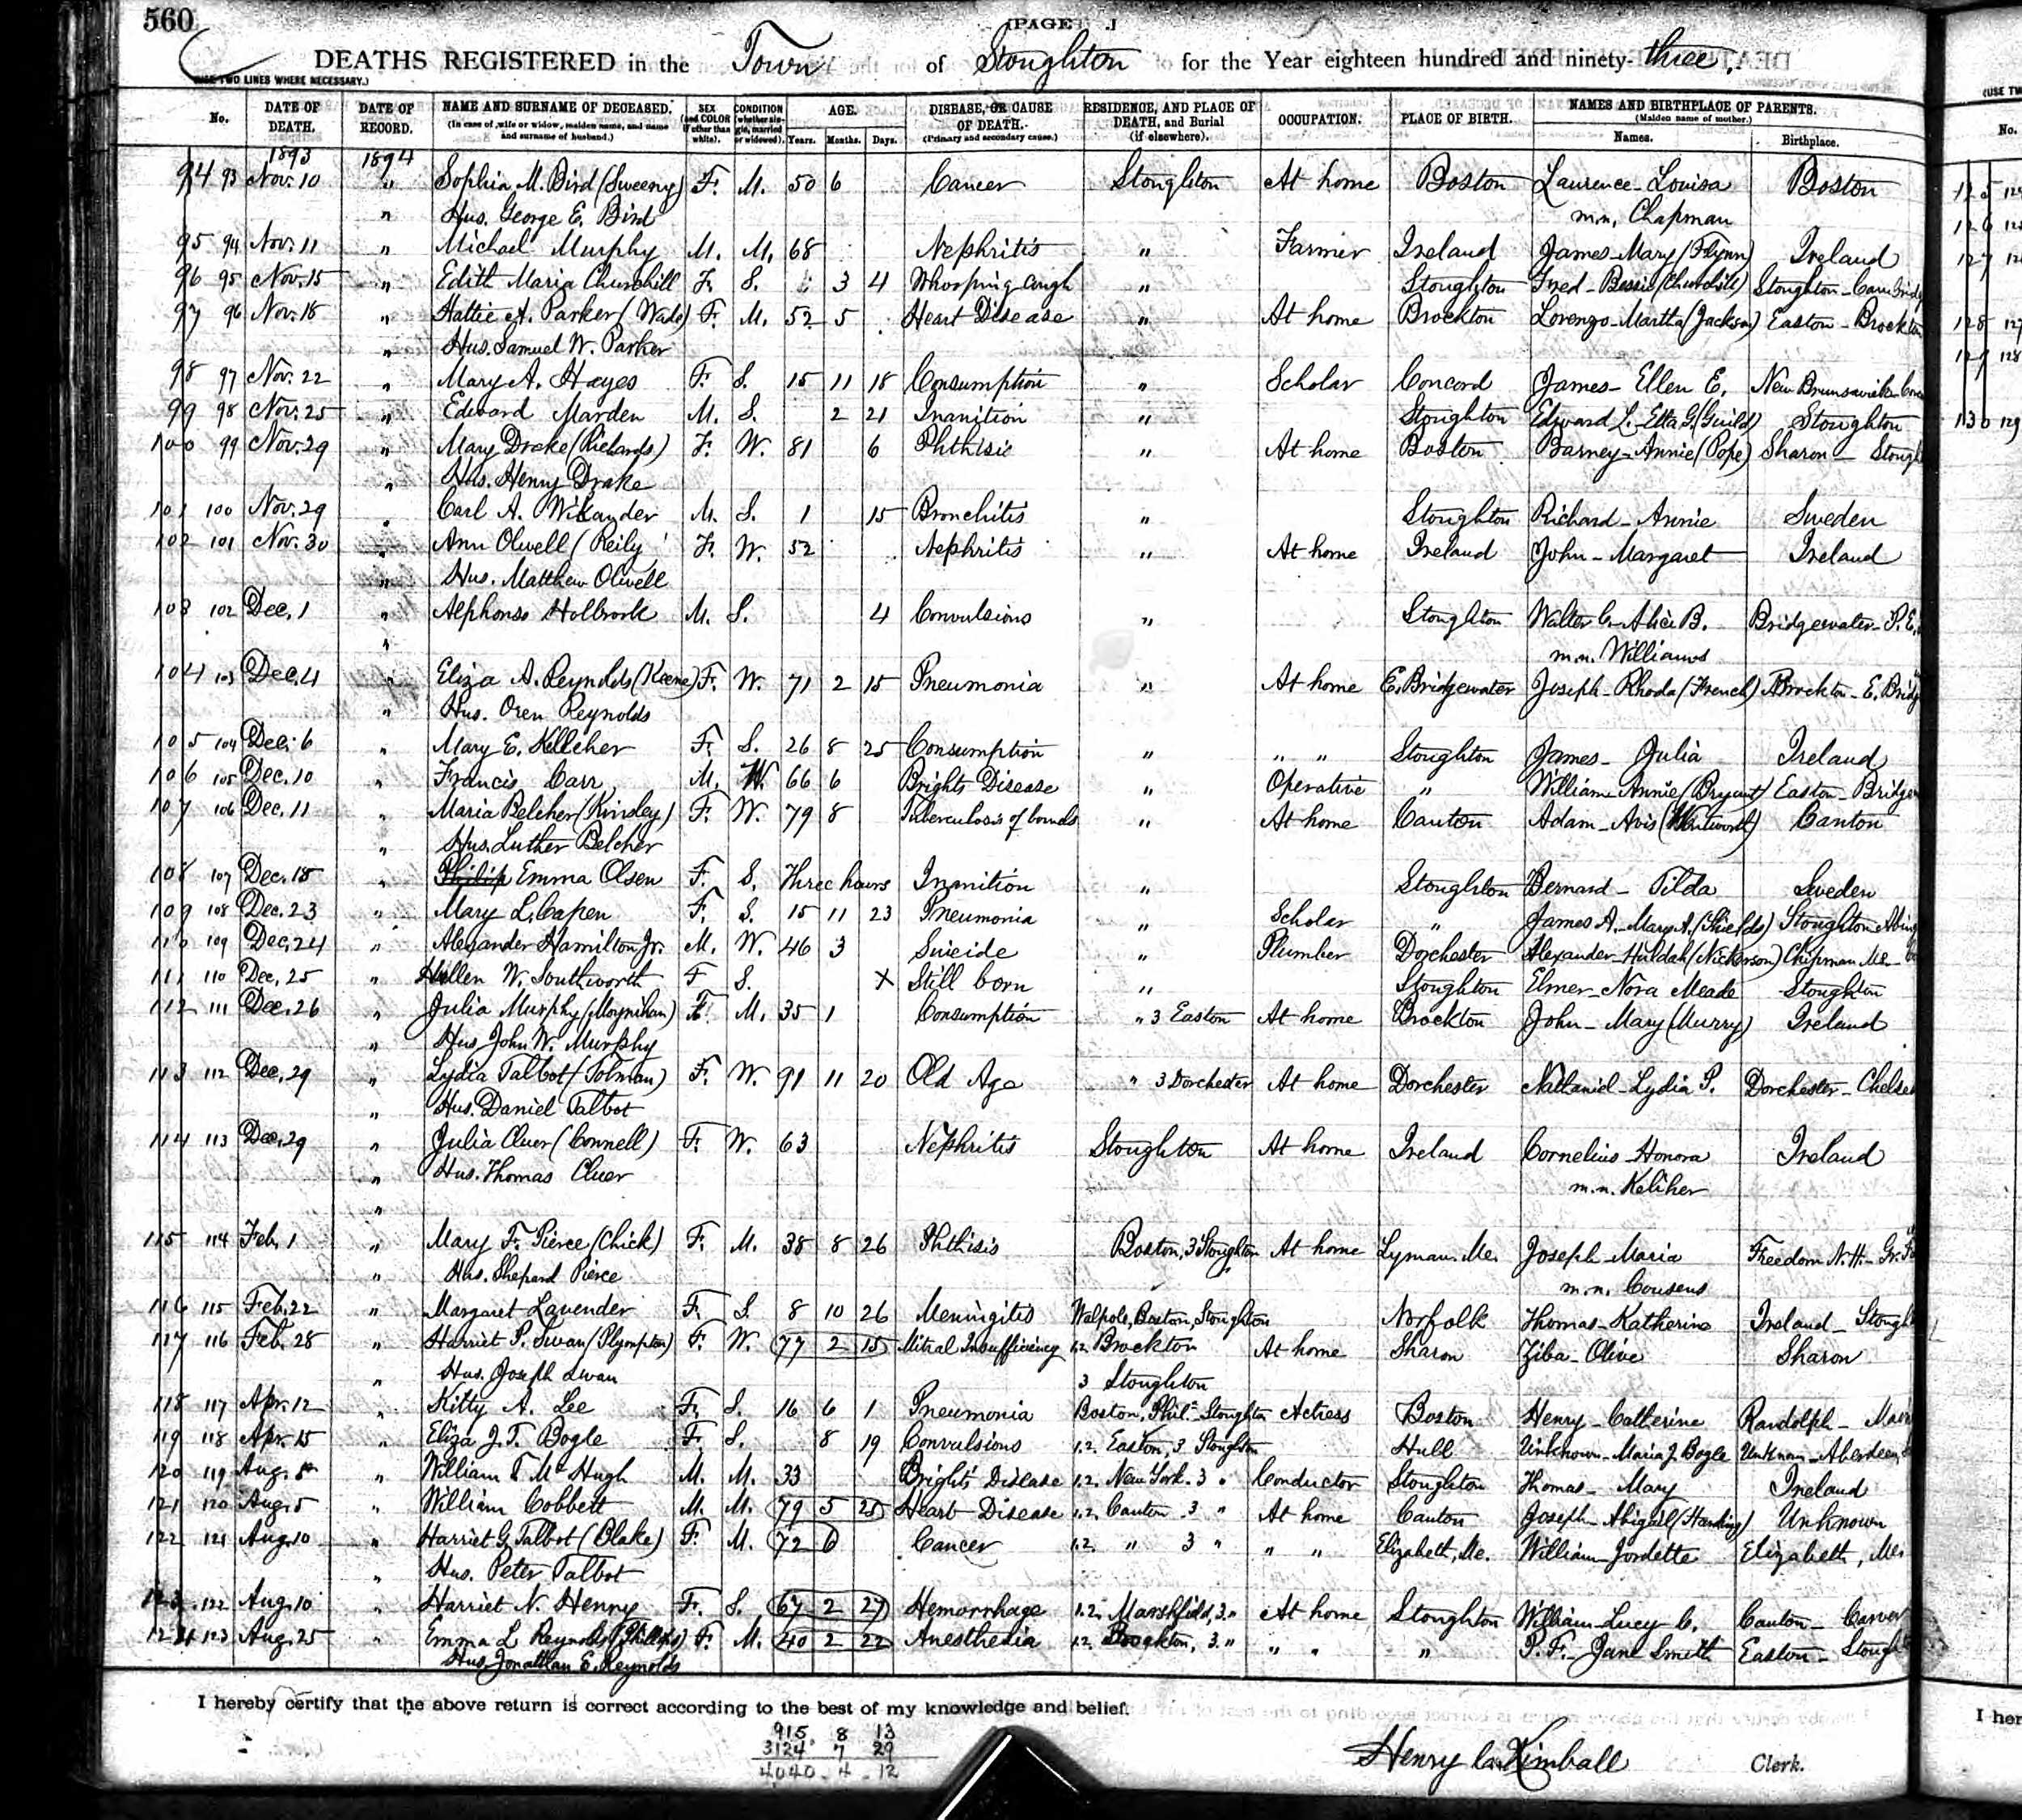 560
[PAGE .]
DEATHS REGISTERED in the Town of Stoughton for the Year eighteen hundred and ninety-three.
(USE TWO LINES WHERE NECESSARY.)
No. DATE OF DEATH. DATE OF RECORD. NAME AND SURNAME OF DECEASED. (In case of wife or widow, maiden name, and name and surname of husband.) SEX and COLOR (if other than white). CONDITION (whether single, married or widowed). AGE. Years. Months. Days. DISEASE, OR CAUSE OF DEATH. (Primary and secondary cause.) RESIDENCE, AND PLACE OF DEATH, and Burial (if elsewhere). OCCUPATION. PLACE OF BIRTH. NAMES AND BIRTHPLACE OF PARENTS. (Maiden name of mother.) Names. Birthplace.
1893 1894
94 93 Nov. 10 " Sophia M. Bird (Sweeny) F. M. 50 6 Cancer Stoughton At home Boston Laurence - Louisa Boston
" Hus. George E. Bird m.n. Chapman
95 94 Nov. 11 " Michael Murphy M. M. 68 Nephritis " Farmer Ireland James - Mary (Flynn) Ireland
96 95 Nov. 15 " Edith Maria Churchill F. S. 3 4 Whooping cough " Stoughton Fred - Bessie (Churchill) Stoughton - Cambridg
97 96 Nov. 18 " Hattie A. Parker (Wale) F. M. 52 5 Heart Disease " At home Brockton Lorenzo - Martha (Jackson) Easton - Brockton
" Hus. Samuel W. Parker
98 97 Nov. 22 " Mary A. Hayes F. S. 15 11 18 Consumption " Scholar Concord James - Ellen E. New Brunswick
99 98 Nov. 25 " Edward Marden M. S. 2 21 Inanition " Stoughton Edward L. - Etta G. (Guild) Stoughton
100 99 Nov. 29 " Mary Drake (Richards) F. W. 81 6 Phthisis " At home Boston Barney - Annie (Pope) Sharon - Stough
" Hus. Henry Drake
101 100 Nov. 29 " Carl A. Wikander M. S. 1 15 Bronchitis " Stoughton Richard - Annie Sweden
102 101 Nov. 30 " Ann Olwell (Reily) F. W. 52 Nephritis " At home Ireland John - Margaret Ireland
" Hus. Matthew Olwell
103 102 Dec. 1 " Alphonso Holbrook M. S. 4 Convulsions " Stoughton Walter C. - Alice B. Bridgewater - P.E.
" m.n. Williams
104 103 Dec. 4 " Eliza A. Reynolds (Keene) F. W. 71 2 15 Pneumonia " At home E. Bridgewater Joseph - Rhoda (French) Brockton - E. Bridg
" Hus. Oren Reynolds
105 104 Dec. 6 " Mary E. Kelleher F. S. 26 8 25 Consumption " " " Stoughton James - Julia Ireland
106 105 Dec. 10 " Francis Carr M. W. 66 6 Brights Disease " Operative " William - Annie (Bryant) Easton - Bridge
107 106 Dec. 11 " Maria Belcher (Kinsley) F. W. 79 8 Tuberculosis of bowels " At home Canton Adam - Avis (Wentworth) Canton
" Hus. Luther Belcher
108 107 Dec. 18 " Philip Emma Olsen F. S. Three hours Inanition " Stoughton Bernard - Tilda Sweden
109 108 Dec. 23 " Mary L. Capen F. S. 15 11 23 Pneumonia " Scholar " James A. - Mary A. (Shields) Stoughton Abing
110 109 Dec. 24 " Alexander Hamilton Jr. M. W. 46 3 Suicide " Plumber Dorchester Alexander - Huldah (Nickerson) Chipman Me.
111 110 Dec. 25 " Hellen W. Southworth F S. X Still born " Stoughton Elmer - Nora Meade Stoughton
112 111 Dec. 26 " Julia Murphy (Moynihan) F. M. 35 1 Consumption " 3 Easton At home Brockton John - Mary (Murry) Ireland
" Hus John W. Murphy
113 112 Dec. 29 " Lydia Talbot (Tolman) F. W. 91 11 20 Old Age " 3 Dorchester At home Dorchester Nathaniel - Lydia P. Dorchester - Chelsea
" Hus. Daniel Talbot
114 113 Dec. 29 " Julia Cluer (Connell) F. W. 63 Nephritis Stoughton At home Ireland Cornelius - Honora Ireland
" Hus. Thomas Cluer m.n. Keliher
"
115 114 Feb. 1 " Mary F. Pierce (Chick) F. M. 38 8 26 Phthisis Boston, 3 Stoughton At home Lyman. Me. Joseph - Maria Freedom N.H. - Gr.
" Hus. Shepard Pierce m.n. Cousens
116 115 Feb. 22 " Margaret Lavender F. S. 8 10 26 Meningitis Walpole, Boston, Stoughton Norfolk Thomas - Katherine Ireland - Stough
117 116 Feb. 28 " Harriet P. Swan (Plympton) F. W. 77 2 15 Mitral Insufficiency 1.2. Brockton At home Sharon Ziba - Olive Sharon
" Hus. Joseph Swan 3 Stoughton
118 117 Apr. 12 " Kitty A. Lee F. S. 16 6 1 Pneumonia Boston, Phil. Stoughton Actress Boston Henry - Catherine Randolph -
119 118 Apr. 15 " Eliza J. T. Bogle F. S. 8 19 Convulsions 1.2. Easton, 3 Stoughton Hull Unknown - Maria J. Bogle Unknown - Aberdeen,
120 119 Aug. " William T. McHugh M. M. 33 Bright's Disease 1.2. New York. 3 " Conductor Stoughton Thomas - Mary Ireland
121 120 Aug. 5 " William Cobbett M. M. 79 5 25 Heart Disease 1.2. Canton. 3 " At home Canton Joseph - Abigail (Harding) Unknown
122 121 Aug. 10 " Harriet G. Talbot (Blake) F. M. 72 6 Cancer 1.2. " 3 " " " Elizabeth, Me. William - Jordette Elizabeth, Me.
" Hus. Peter Talbot
123 122 Aug. 10 " Harriet N. Henry F. S. 67 2 27 Hemorrhage 1.2. Marshfield, 3. " At home Stoughton William - Lucy C. Canton - Carver
124 123 Aug. 25 " Emma L. Reynolds (Phillips) F. M. 40 2 22 Anesthesia 1.2. Brockton, 3. " " " " P. F. - Jane Smith Easton - Stough
Hus. Jonathan E. Reynolds
I hereby certify that the above return is correct according to the best of my knowledge and belief.
915 8 13
3124 7 29
4040 - 4 - 12
Henry C. Kimball Clerk.
(USE TW
No.
125
126
127
128 127
129 128
130 129
I her